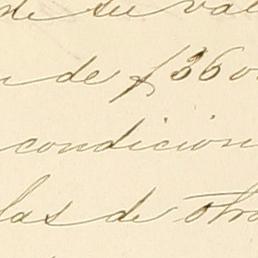 de su val
de $360
condicion
las de otro